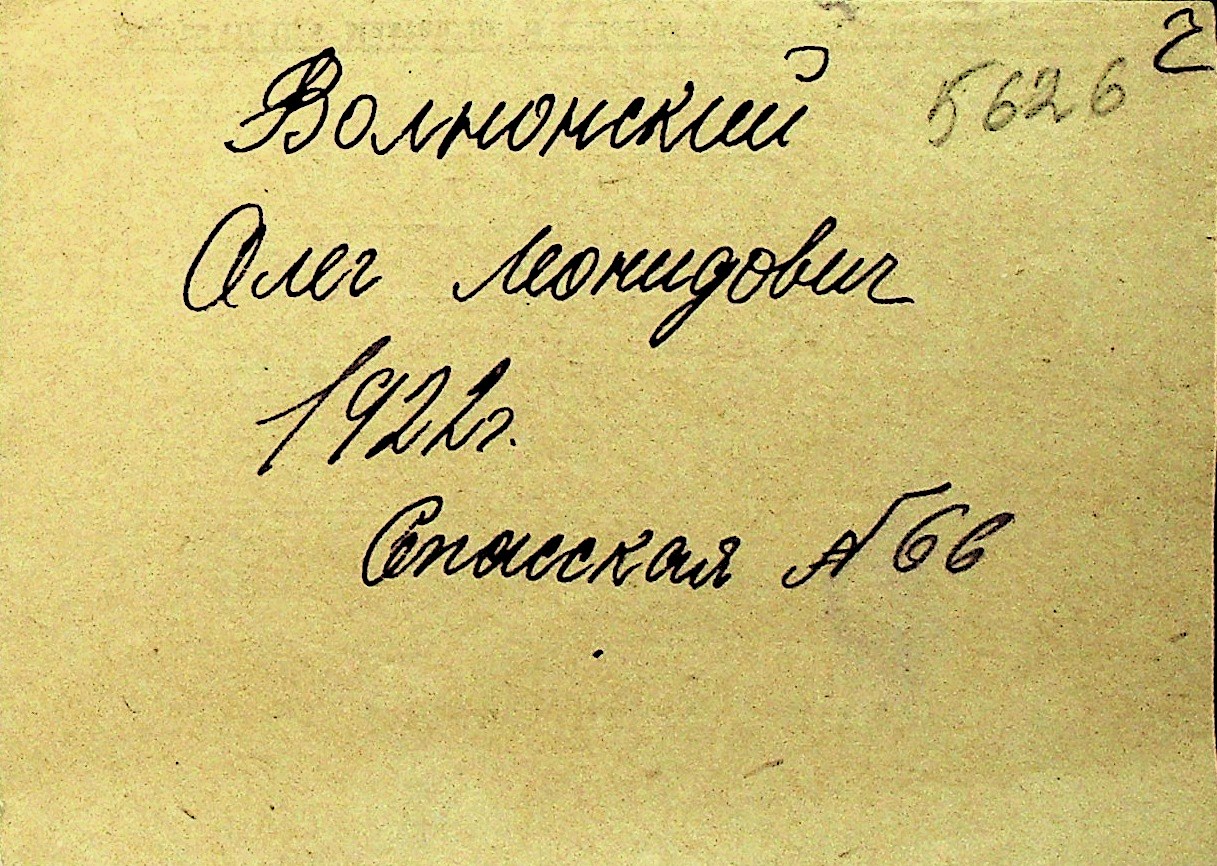 Волнонский 5626
Олег Леонидович
1922г.
Спасская №66